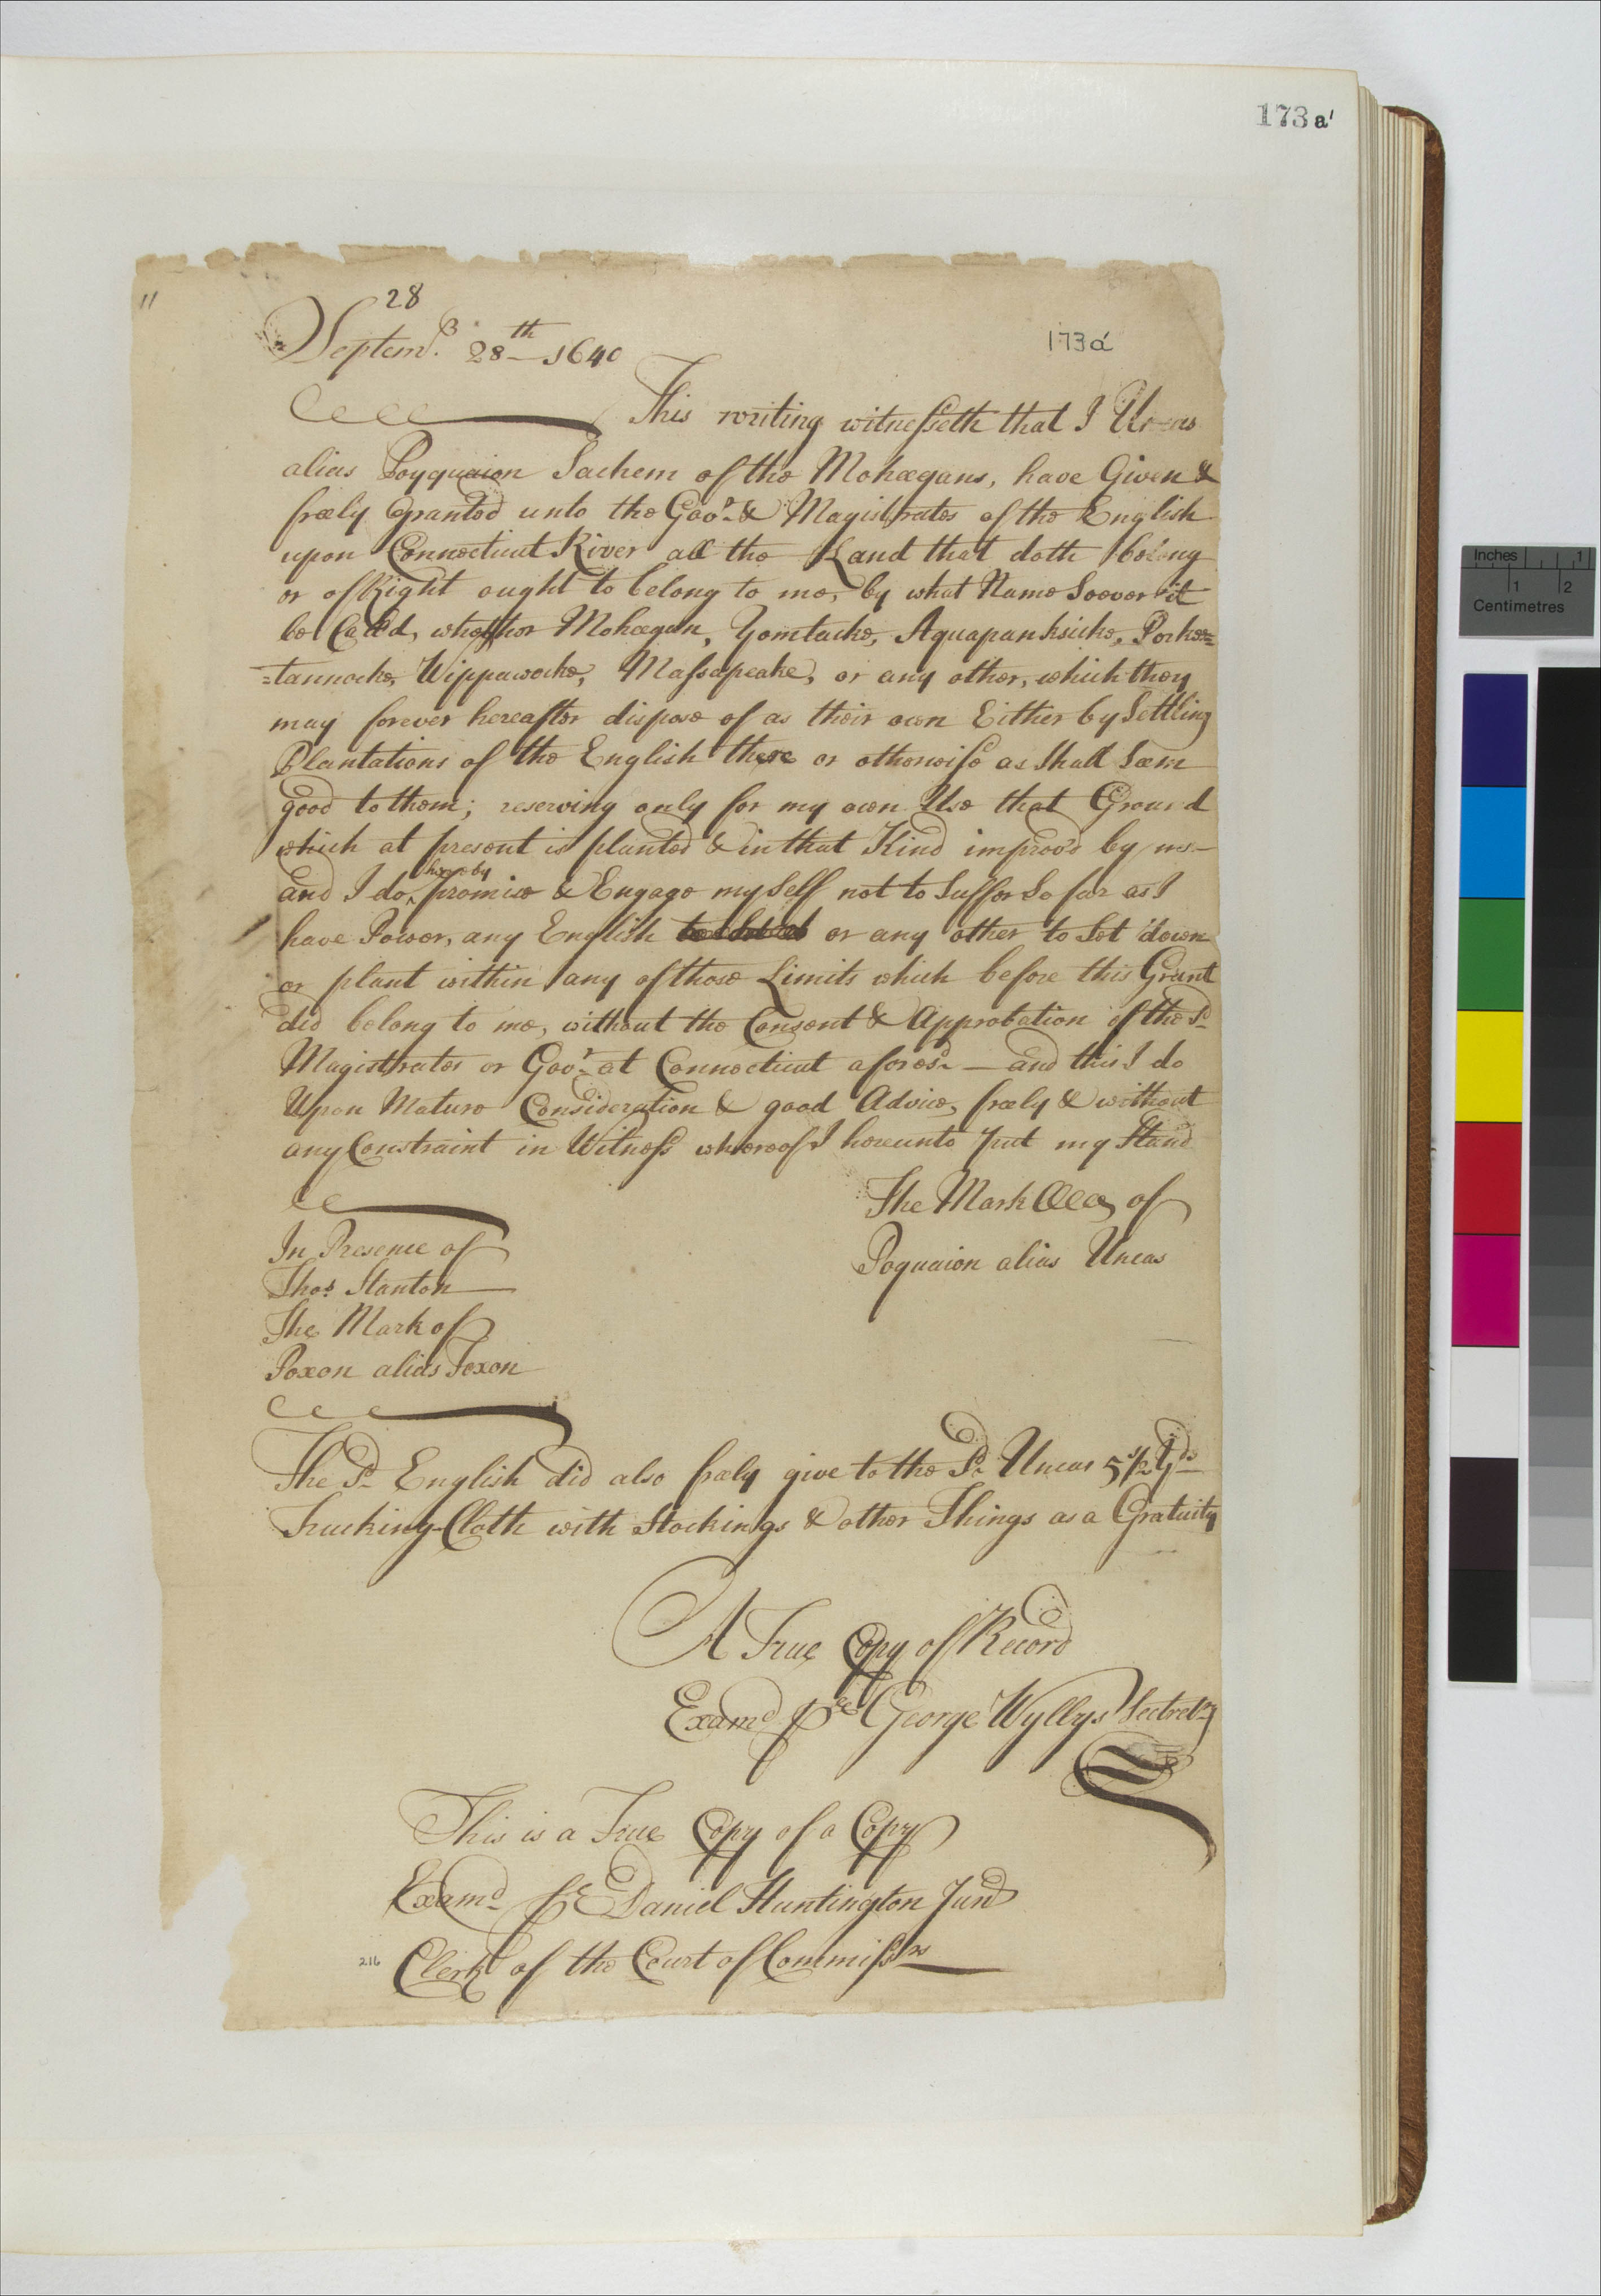 173 a'
11
28
173a'
Septemr. 28th 1640
This writing witnesseth that I Uncas
alias Poyquaion Sachem of the Mohegans, have Given &
freely Granted unto the Govr. & Magistrates of the English
upon Connecticut River all the Land that doth belong
or of Right ought to belong to me, by what Name Soever it
be Calld, whether Mohegan, Yomtacke, Aquapanksicke, Porkee=
=tannocke, Wippawocke, Massapeake, or any other, which they
may forever hereafter dispose of as their own Either by Settling
Plantations of the English there or otherwise as Shall Seem
good to them; reserving only for my own Use that Ground
which at present is planted & in that Kind improvd by me
hereby
and I do ^ promise & Engage my Self not to Suffer So far as I
have Power, any English or any other to Set down
or plant within any of those Limits which before this Grant
did belong to me, without the Consent & Approbation of the Sd
Magistrates or Govr. at Connecticut aforesd. — and this I do
Upon Mature Consideration & good Advice, freely & without
any Constraint in Witness whereof I hereunto put my Hand
The Mark of
In Presence of
Poquaion alias Uncas
Thos. Stanton
The Mark of
Poxon alias Foxon
The Sd English did also freely give to the Sd Uncas 5 1/2 Yds
Trucking-Cloth with Stockings & other Things as a Gratuity
A True Copy of Record
Examd pr George Wyllys Secretry
This is a True Copy of a Copy
Examd pr Daniel Huntington Junr
216
Clerk of the Court of Commissrs
Inches 1
1 2
Centimetres